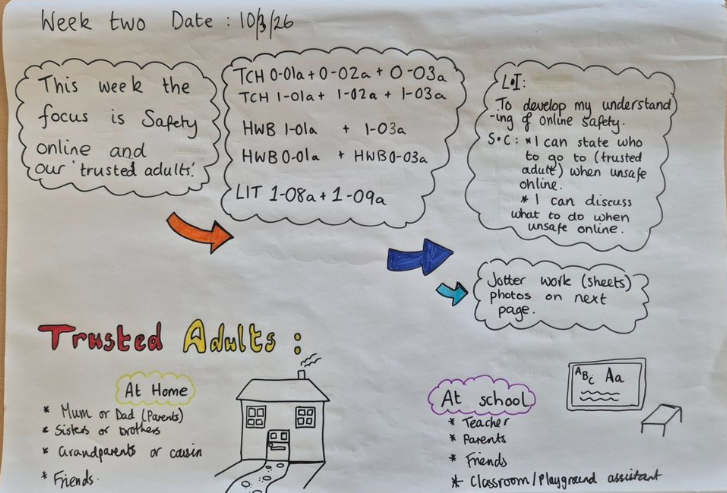 Week two Date : 10/3/26
This week the
focus is Safety
online and
our 'trusted adults'.
TCH 0-01a + 0-02a + 0-03a
TCH 1-01a + 1-02a + 1-03a
HWB 1-01a + 1-03a
HWB 0-01a + HWB 0-03a
LIT 1-08a + 1-09a
L.I:
To develop my understand
-ing of online safety.
S.C: * I can state who
to go to (trusted
adult) when unsafe
online.
* I can discuss
what to do when
unsafe online.
Jotter work (sheets)
photos on next
page.
Trusted Adults :
At Home
* Mum or Dad (Parents)
* Sisters or brothers
* Grandparents or cousin
* Friends.
At school
* Teacher
* Parents
* Friends
* Classroom/Playground assistant
ABC Aa